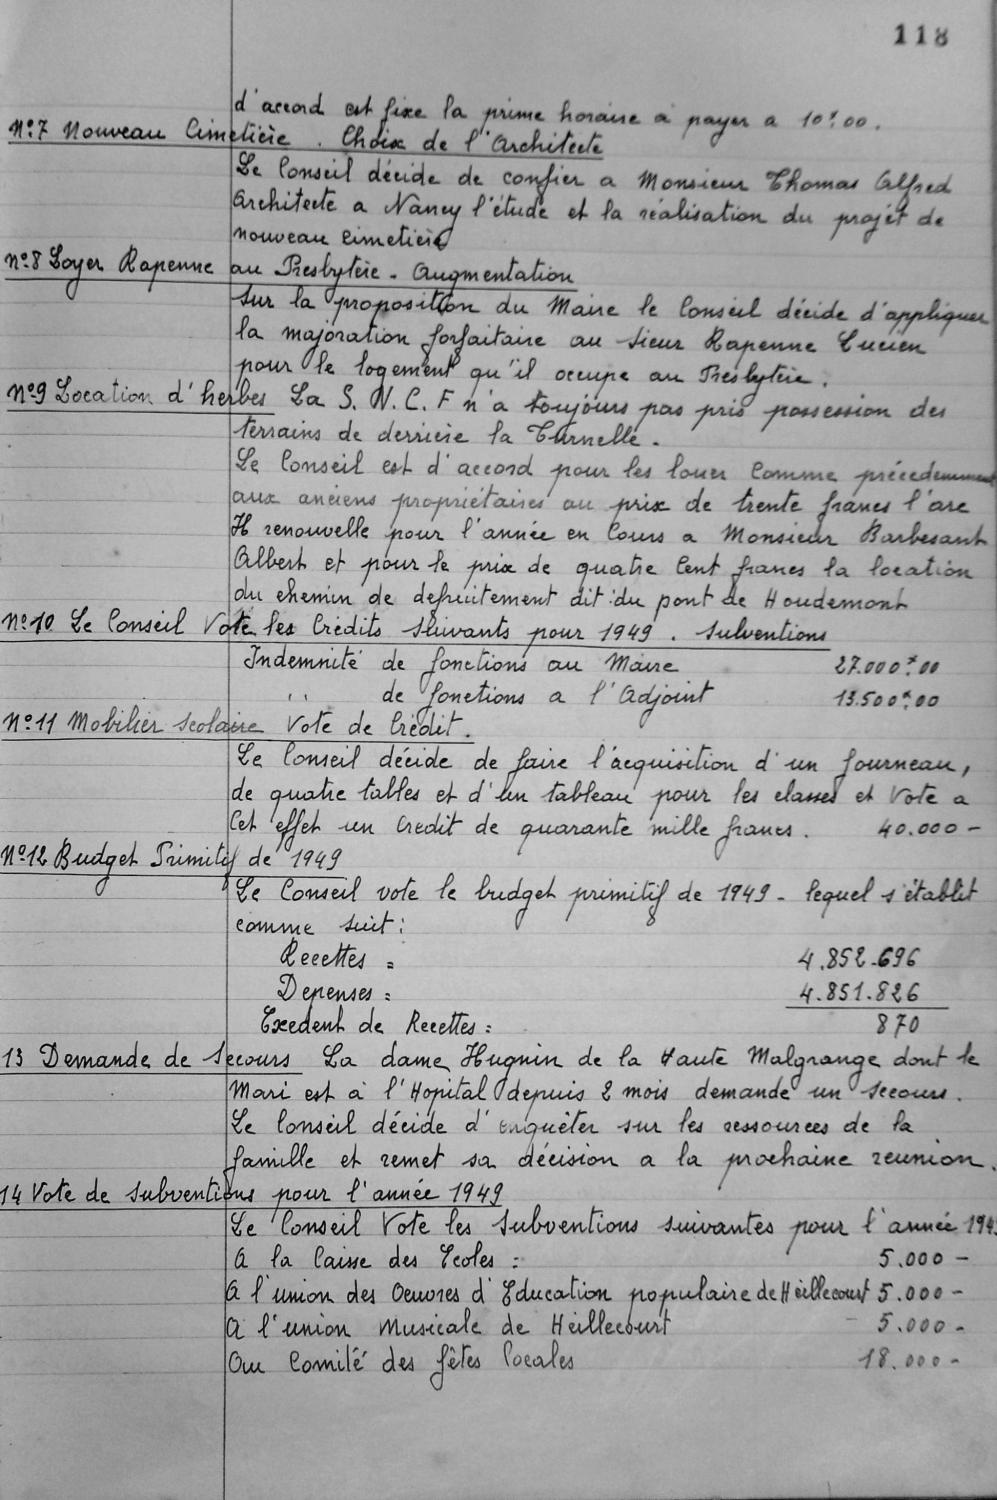 118
d'accord et fixe la prime horaire a payer a 10f.00.
N°7 Nouveau Cimetière. Choix de l'Architecte
Le Conseil décide de confier a Monsieur Thomas Alfred
Architecte a Nancy l'étude et la réalisation du projet de
nouveau cimetière
N°8 Loyer Rapenne au Presbytère - Augmentation
Sur la proposition du Maire le Conseil décide d'appliquer
la majoration forfaitaire au Sieur Rapenne Lucien
pour le logement qu'il occupe au Presbytère.
N°9 Location d'herbes La S.N.C.F n'a toujours pas pris possession des
terrains de derrière la Turnelle.
Le Conseil est d'accord pour les louer comme précedemment
aux anciens propriétaires au prix de trente francs l'are
Il renouvelle pour l'année en cours a Monsieur Barbesant
Albert et pour le prix de quatre Cent francs la location
du chemin de defruitement dit: du pont de Houdemont
N°10 Le Conseil Vote les Crédits suivants pour 1949. Subventions
Indemnité de fonctions au Maire 27.000f.00
" de fonctions a l'Adjoint 13.500f.00
N°11 Mobilier scolaire Vote de Crédit.
Le Conseil décide de faire l'acquisition d'un fourneau,
de quatre tables et d'un tableau pour les classes et Vote a
Cet effet un Credit de quarante mille francs. 40.000 -
N°12 Budget Primitif de 1949
Le Conseil vote le budget primitif de 1949 - lequel s'établit
comme suit:
Recettes = 4.852.696
Depenses: 4.851.826
Exedent de Recettes: 870
13 Demande de Secours La dame Hugnin de la Haute Malgrange dont le
Mari est à l'Hopital depuis 2 mois demande un secours.
Le Conseil décide d'enquêter sur les ressources de la
famille et remet sa décision a la prochaine reunion.
14 Vote de Subventions pour l'année 1949
Le Conseil Vote les Subventions suivantes pour l'année 1949
A la Caisse des Ecoles: 5.000 -
A l'union des Oeuvres d'Education populaire de Heillecourt 5.000 -
A l'union Musicale de Heillecourt 5.000 -
Au Comité des fêtes locales 18.000 -